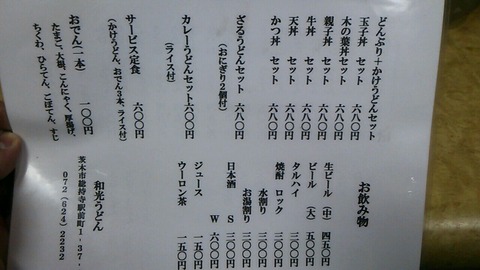 どんぶり+かけうどんセット
玉子丼 セット 六八〇円
木の葉丼セット 六八〇円
親子丼 セット 六八〇円
牛丼 セット 六八〇円
天丼 セット 六八〇円
かつ丼 セット 六八〇円
ざるうどんセット 六八〇円
(おにぎり2個付)
カレーうどんセット六〇〇円
(ライス付)
サービス定食 六〇〇円
(かけうどん、おでん3本、ライス付)
おでん(一本) 一〇〇円
たまご、大根、こんにゃく、厚揚げ、
ちくわ、ひらてん、ごぼてん、すじ
お飲み物
生ビール(中) 四五〇円
ビール (大) 五〇〇円
タルハイ 三〇〇円
焼酎 ロック 三〇〇円
水割り 三〇〇円
お湯割り 三〇〇円
日本酒 S 三〇〇円
W 六〇〇円
ジュース 一五〇円
ウーロン茶 一五〇円
和光うどん
茨木市総持寺駅前町1-37.
072(624)2232